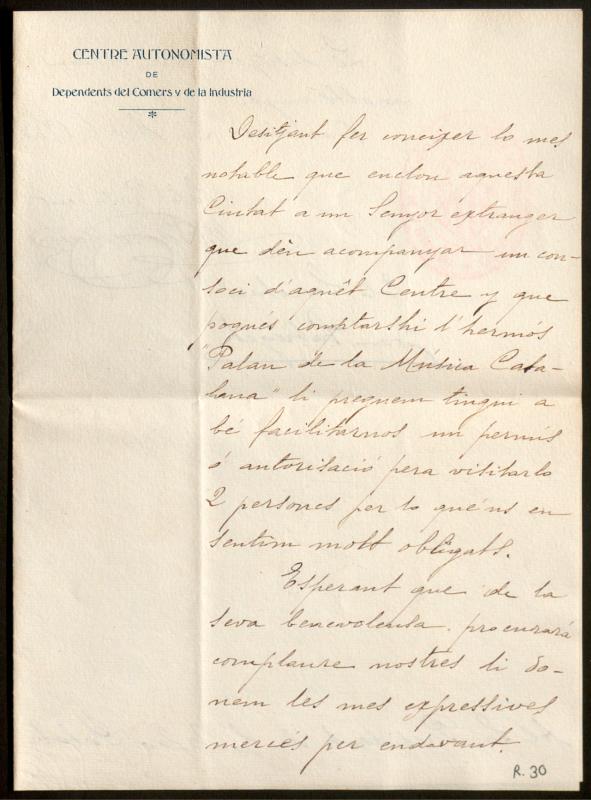 CENTRE AUTONOMISTA
DE
Dependents del Comers y de la Industria
Desitjant fer coneixer lo mes
notable que enclou aquesta
Ciutat á un Senyor éxtranger
que dèu acompanyar un con-
soci d'aquêt Centre y que
pogués comptarshi l'hermós
"Palau de la Música Cata-
lana" li preguem tingui a
bé facilitarnos un permís
ó autorisació pera visitarlo
2 persones per lo qué'ns en
sentim molt obligats.
Esperant que de la
seva benevolensa procurará
complaure nostres li do-
nem les mes expressives
mercés per endavant.
R. 30